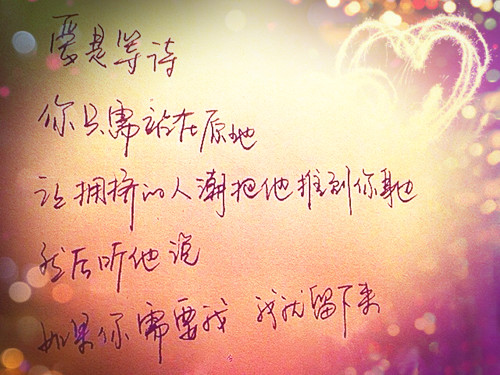 要是等待
你只需站在原地
让拥挤的人潮把他推到你身边
然后听他说
如果你需要我 我就留下来